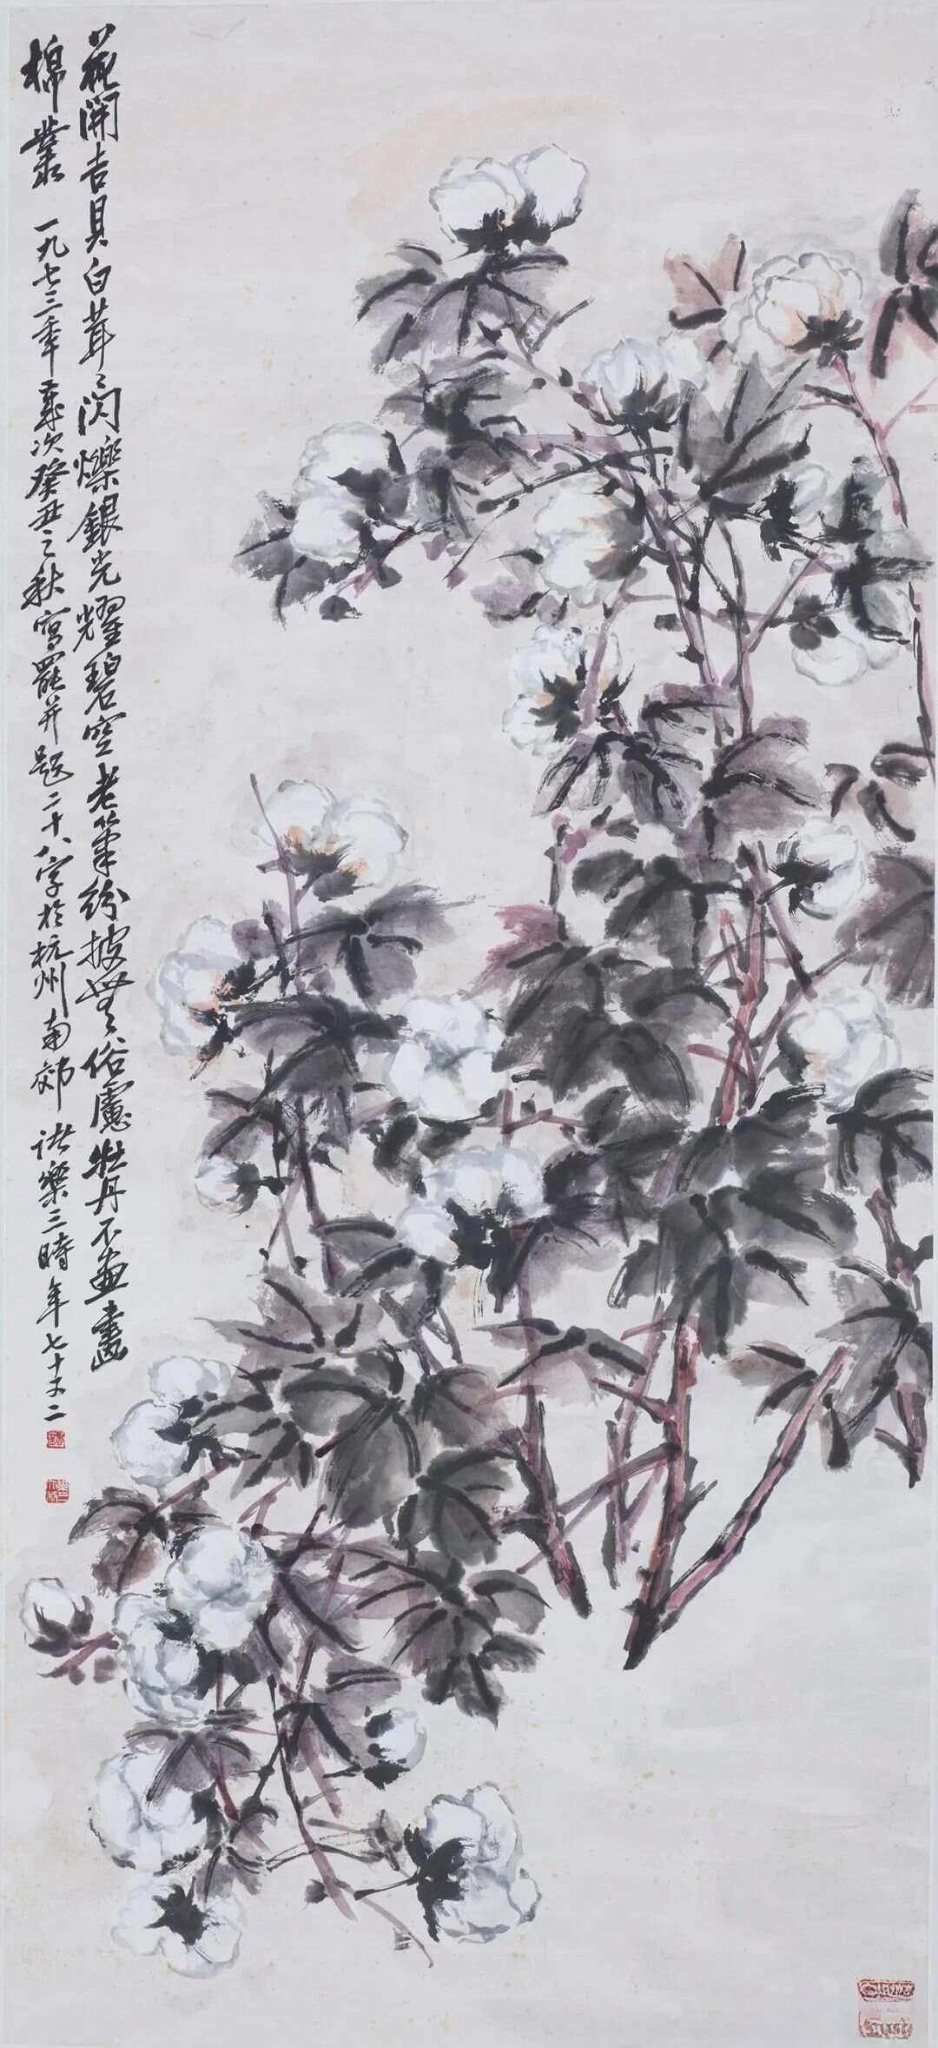 花開吉貝白茸〻閃爍銀光耀碧空老筆紛披無俗慮牡丹不畫畫
棉叢 一九七三年歲次癸丑之秋寫罷并題二十八字於杭州南郊 諸樂三時年七十又二